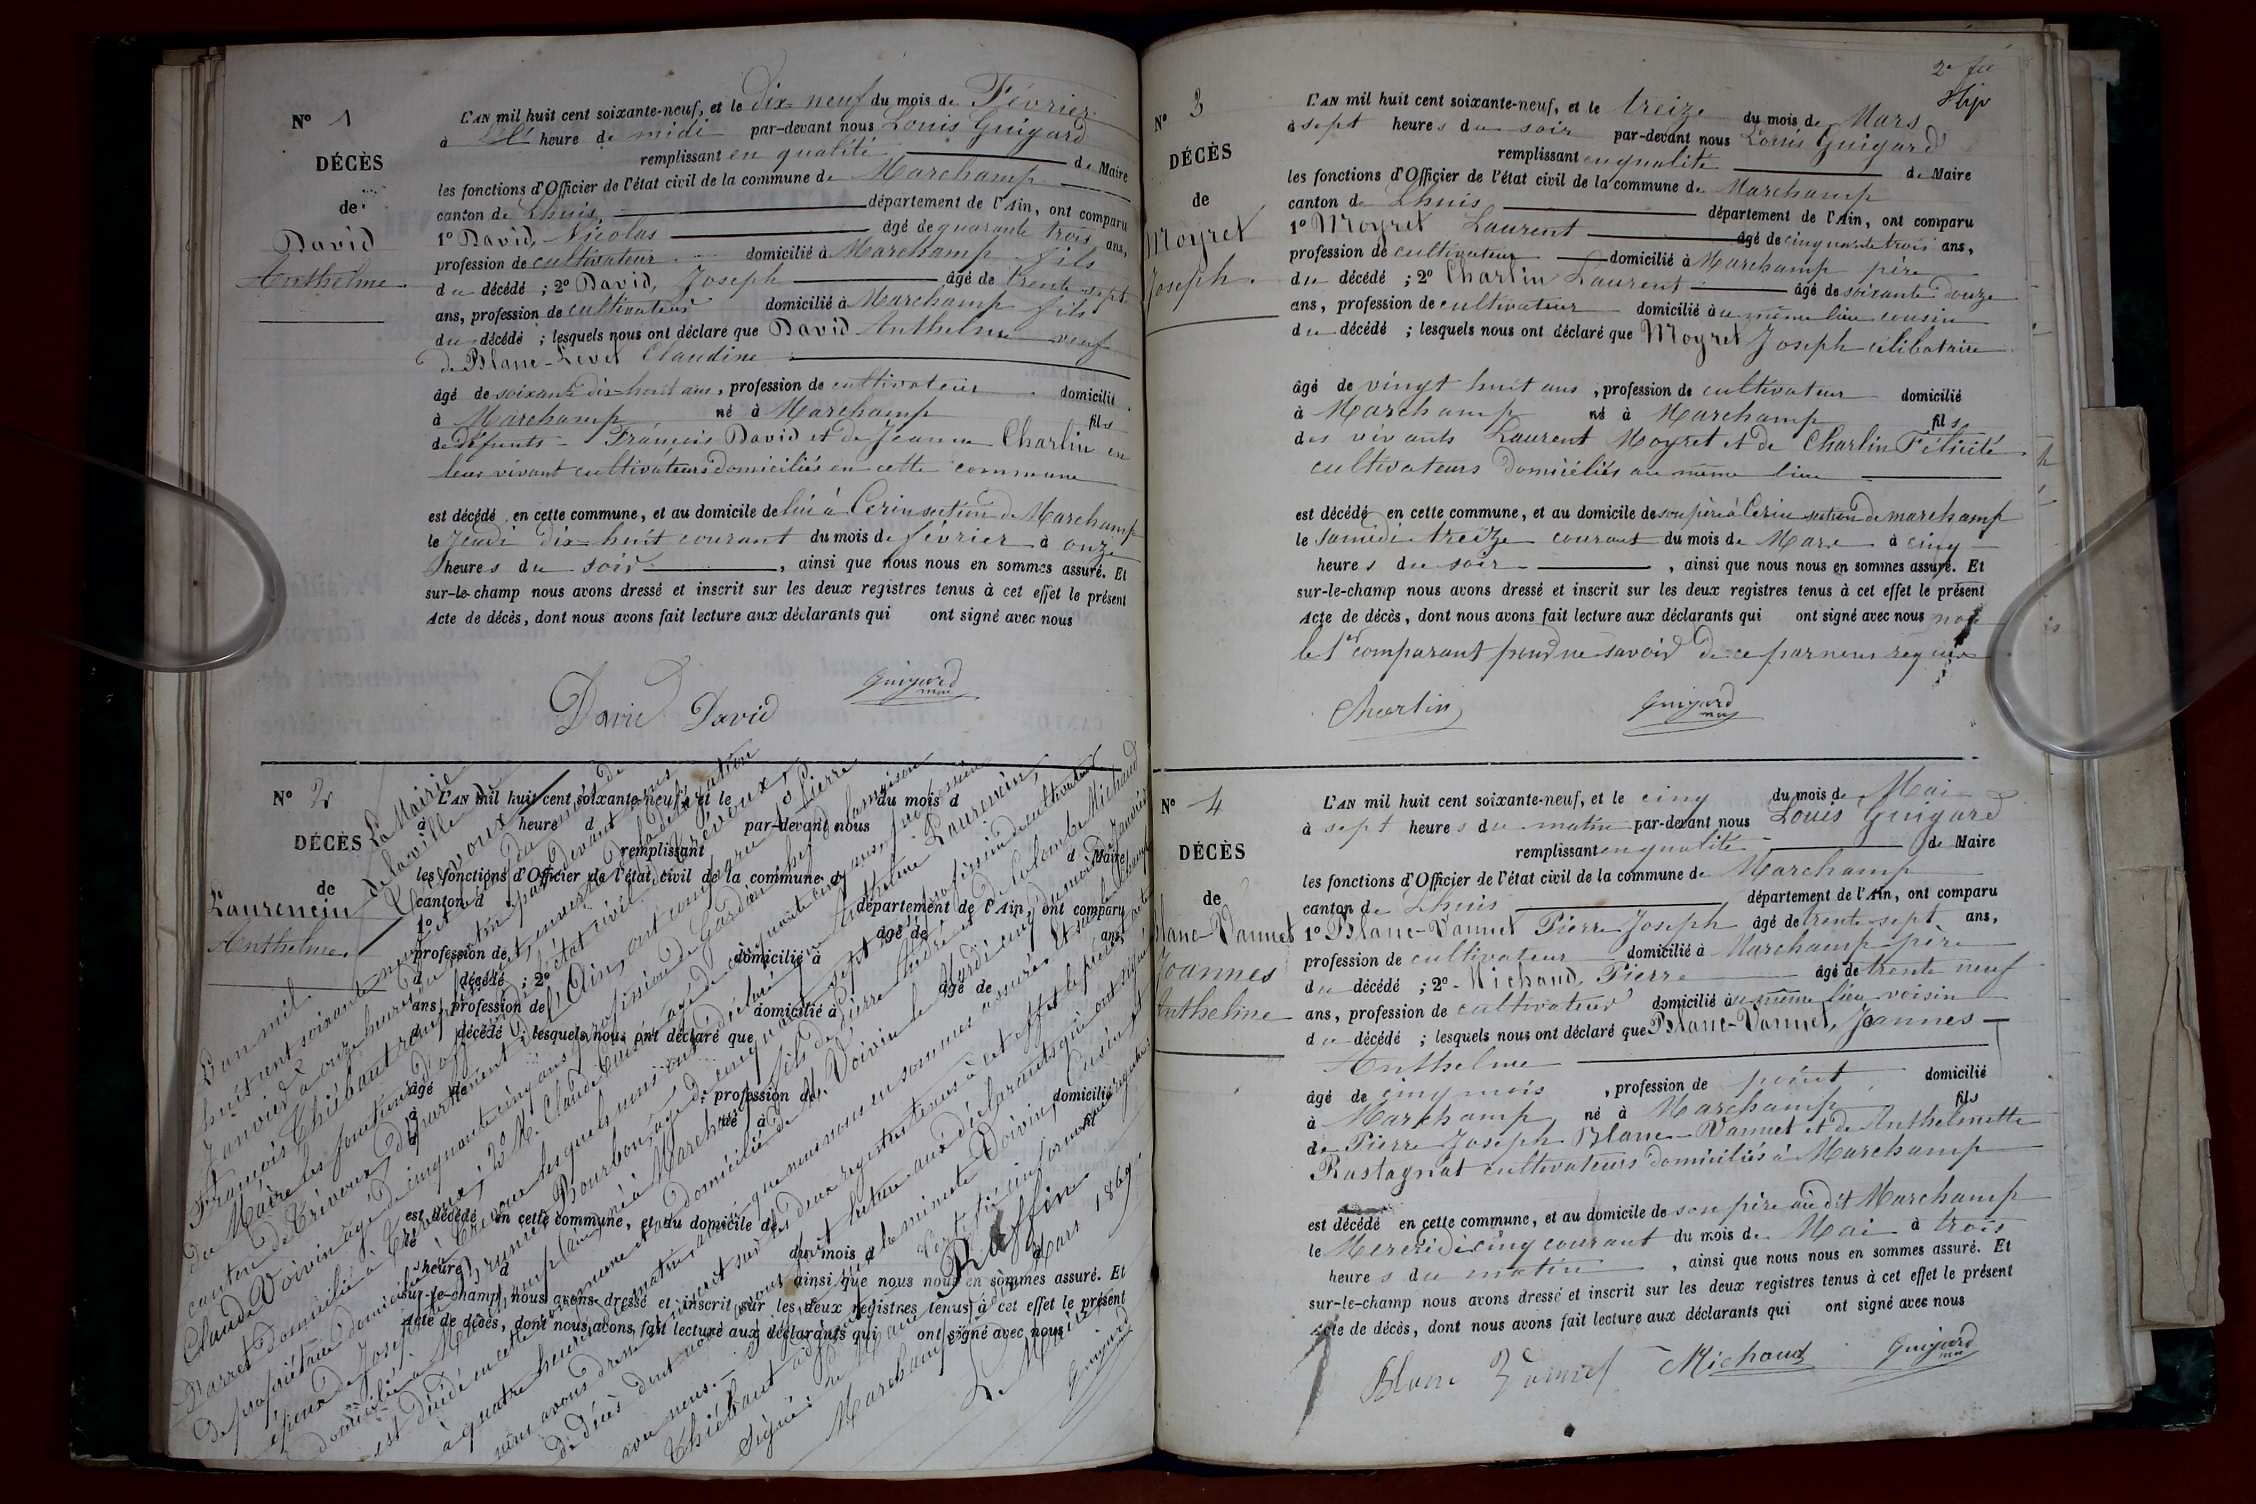 N° 1
DÉCÈS
de
David
Anthelme
L'AN mil huit cent soixante-neuf, et le dix-neuf du mois de Février
à heure de midi par-devant nous Louis Guigard
remplissant en qualité de Maire
les fonctions d'Officier de l'état civil de la commune de Marchamp
canton de Lhuis, département de l'Ain, ont comparu
1° David, Nicolas âgé de quarante trois ans,
profession de cultivateur domicilié à Marchamp fils
du décédé ; 2° David, Joseph âgé de trente sept
ans, profession de cultivateur domicilié à Marchamp fils
du décédé ; lesquels nous ont déclaré que David Anthelme veuf
de Blanc-Level Claudine
âgé de soixante dix-huit ans, profession de cultivateur domicilié
à Marchamp né à Marchamp fils
de défunts François David et de Jeanne Charlin en
leur vivant cultivateurs domiciliés en cette commune
est décédé en cette commune, et au domicile de lui à Cerin section de Marchamp
le Jeudi dix-huit courant du mois de février à onze
heures du soir, ainsi que nous nous en sommes assuré. Et
sur-le-champ nous avons dressé et inscrit sur les deux registres tenus à cet effet le présent
Acte de décès, dont nous avons fait lecture aux déclarants qui ont signé avec nous
David David Guigard
maire
N° 2
DÉCÈS
de
Laurencin
Anthelme.
L'AN mil huit cent soixante-neuf, et le du mois d
à heure d par-devant nous
remplissant d Maire
les fonctions d'Officier de l'état civil de la commune d
canton d département de l'Ain, ont comparu
1° âgé de ans,
profession de domicilié à
d décédé ; 2° âgé de
ans, profession de domicilié à
d décédé ; lesquels nous ont déclaré que
âgé de , profession de domicilié
à né à fil
d
est décédé en cette commune, et au domicile de
le du mois d à
heure d ainsi que nous nous en sommes assuré. Et
sur-le-champ nous avons dressé et inscrit sur les deux registres tenus à cet effet le présent
Acte de décès, dont nous avons fait lecture aux déclarants qui ont signé avec nous
La Mairie
de la ville de
Trévoux
L'an mil
huit cent soixante neuf et le cinq du mois de
Janvier à onze heures du matin par devant nous
François Thiébaut
du Maire les fonctions d'officier de l'état civil de la
canton de Trévoux, département de l'Ain, ont comparu 1° Pierre
Claude Voivin âgé de cinquante cinq ans profession de Gardien chef de la maison
d'arrêt domicilié à Trévoux, 2° M. Claude
de propriétaire domicilié à Trévoux lesquels nous ont déclaré que Anthelme Laurencin,
époux de Josephte Brunet Bourbon, âgé de cinquante sept ans, profession de cultivateur
domicilié à Marchamp né à Marchamp fils de Pierre et de Colombe Michaud
est décédé en cette commune et au domicile de M. Voivin le Mardi cinq du mois de Janvier
à quatre heures du matin, ainsi que nous nous en sommes assurés. Et sur-le-champ
nous avons dressé et inscrit sur les deux registres tenus à cet effet le présent acte
de décès dont nous avons fait lecture aux déclarants qui ont signé
avec nous.
Thiébaut adjoint
Ruffin
Marchamp Mars 1869
Le Maire
Guigard
2e
N° 3
DÉCÈS
de
Moyret
Joseph.
L'AN mil huit cent soixante-neuf, et le treize du mois de Mars
à sept heures du soir par-devant nous Louis Guigard
remplissant en qualité de Maire
les fonctions d'Officier de l'état civil de la commune de Marchamp
canton de Lhuis département de l'Ain, ont comparu
1° Moyret Laurent âgé de cinquante trois ans,
profession de cultivateur domicilié à Marchamp père
du décédé ; 2° Charlin Laurent âgé de soixante douze
ans, profession de cultivateur domicilié au même lieu cousin
du décédé ; lesquels nous ont déclaré que Moyret Joseph célibataire
âgé de vingt huit ans, profession de cultivateur domicilié
à Marchamp né à Marchamp fils
des vivants Laurent Moyret et de Charlin Félicité
cultivateurs domiciliés au même lieu
est décédé en cette commune, et au domicile de son père à Cerin section de marchamp
le samedi treize courant du mois de Mars à cinq
heures du soir, ainsi que nous nous en sommes assuré. Et
sur-le-champ nous avons dressé et inscrit sur les deux registres tenus à cet effet le présent
Acte de décès, dont nous avons fait lecture aux déclarants qui ont signé avec nous non
le 1er comparant pour ne savoir de ce par nous requis
Charlin Guigard
maire
N° 4
DÉCÈS
de
Blanc-Vannet
Joannes
Anthelme
L'AN mil huit cent soixante-neuf, et le cinq du mois de Mai
à sept heures du matin par-devant nous Louis Guigard
remplissant en qualité de Maire
les fonctions d'Officier de l'état civil de la commune de Marchamp
canton de Lhuis département de l'Ain, ont comparu
1° Blanc-Vannet Pierre Joseph âgé de trente sept ans,
profession de cultivateur domicilié à Marchamp père
du décédé ; 2° Michaud, Pierre âgé de trente neuf
ans, profession de cultivateur domicilié au même lieu voisin
du décédé ; lesquels nous ont déclaré que Blanc-Vannet, Joannes
Anthelme
âgé de cinq mois, profession de point domicilié
à Marchamp né à Marchamp fils
de Pierre Joseph Blanc-Vannet et de Anthelmette
Rostagnat cultivateurs domiciliés à Marchamp
est décédé en cette commune, et au domicile de son père audit Marchamp
le Mercredi cinq courant du mois de Mai à trois
heures du matin, ainsi que nous nous en sommes assuré. Et
sur-le-champ nous avons dressé et inscrit sur les deux registres tenus à cet effet le présent
Acte de décès, dont nous avons fait lecture aux déclarants qui ont signé avec nous
Blanc Vannet Michaud Guigard
maire